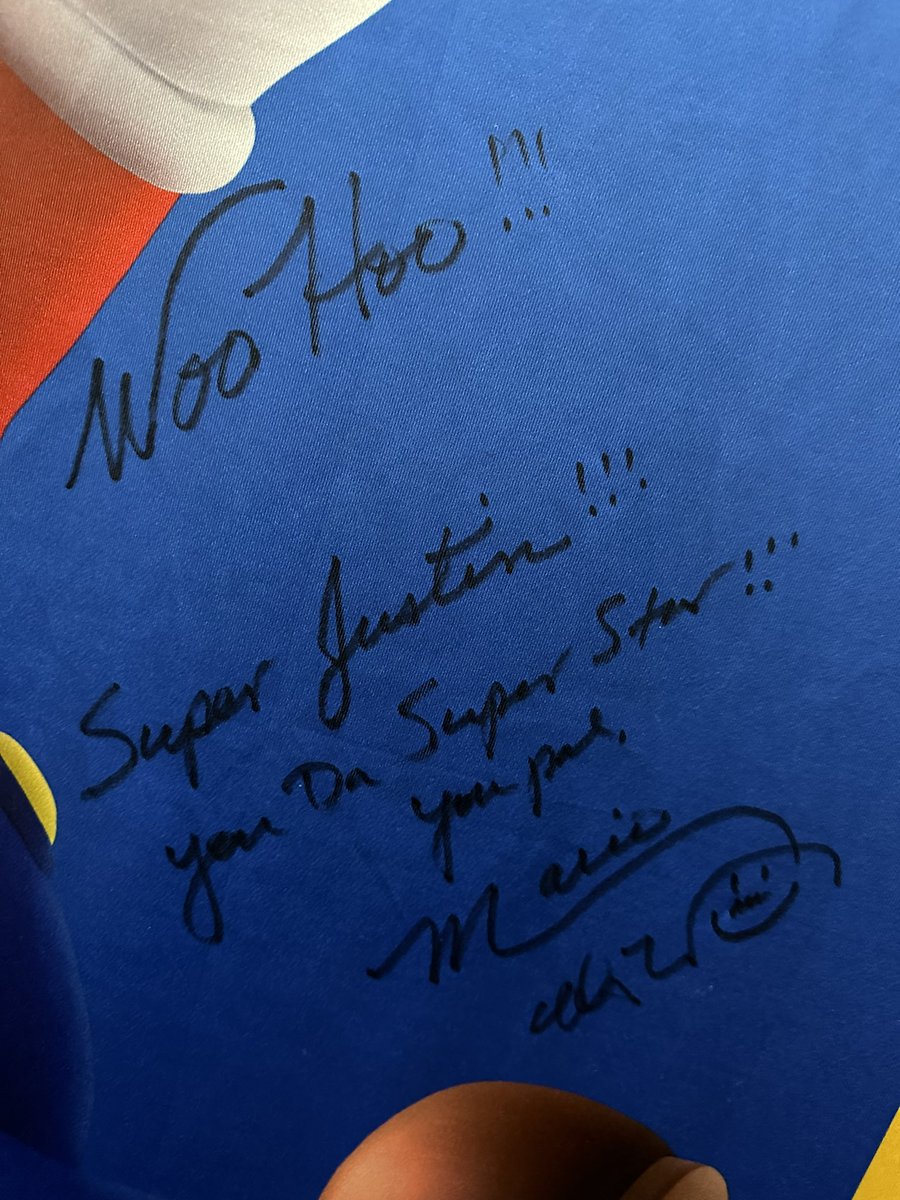 Woo Hoo!!!
Super Justin!!!
you Da Super Star!!!
your
Mario